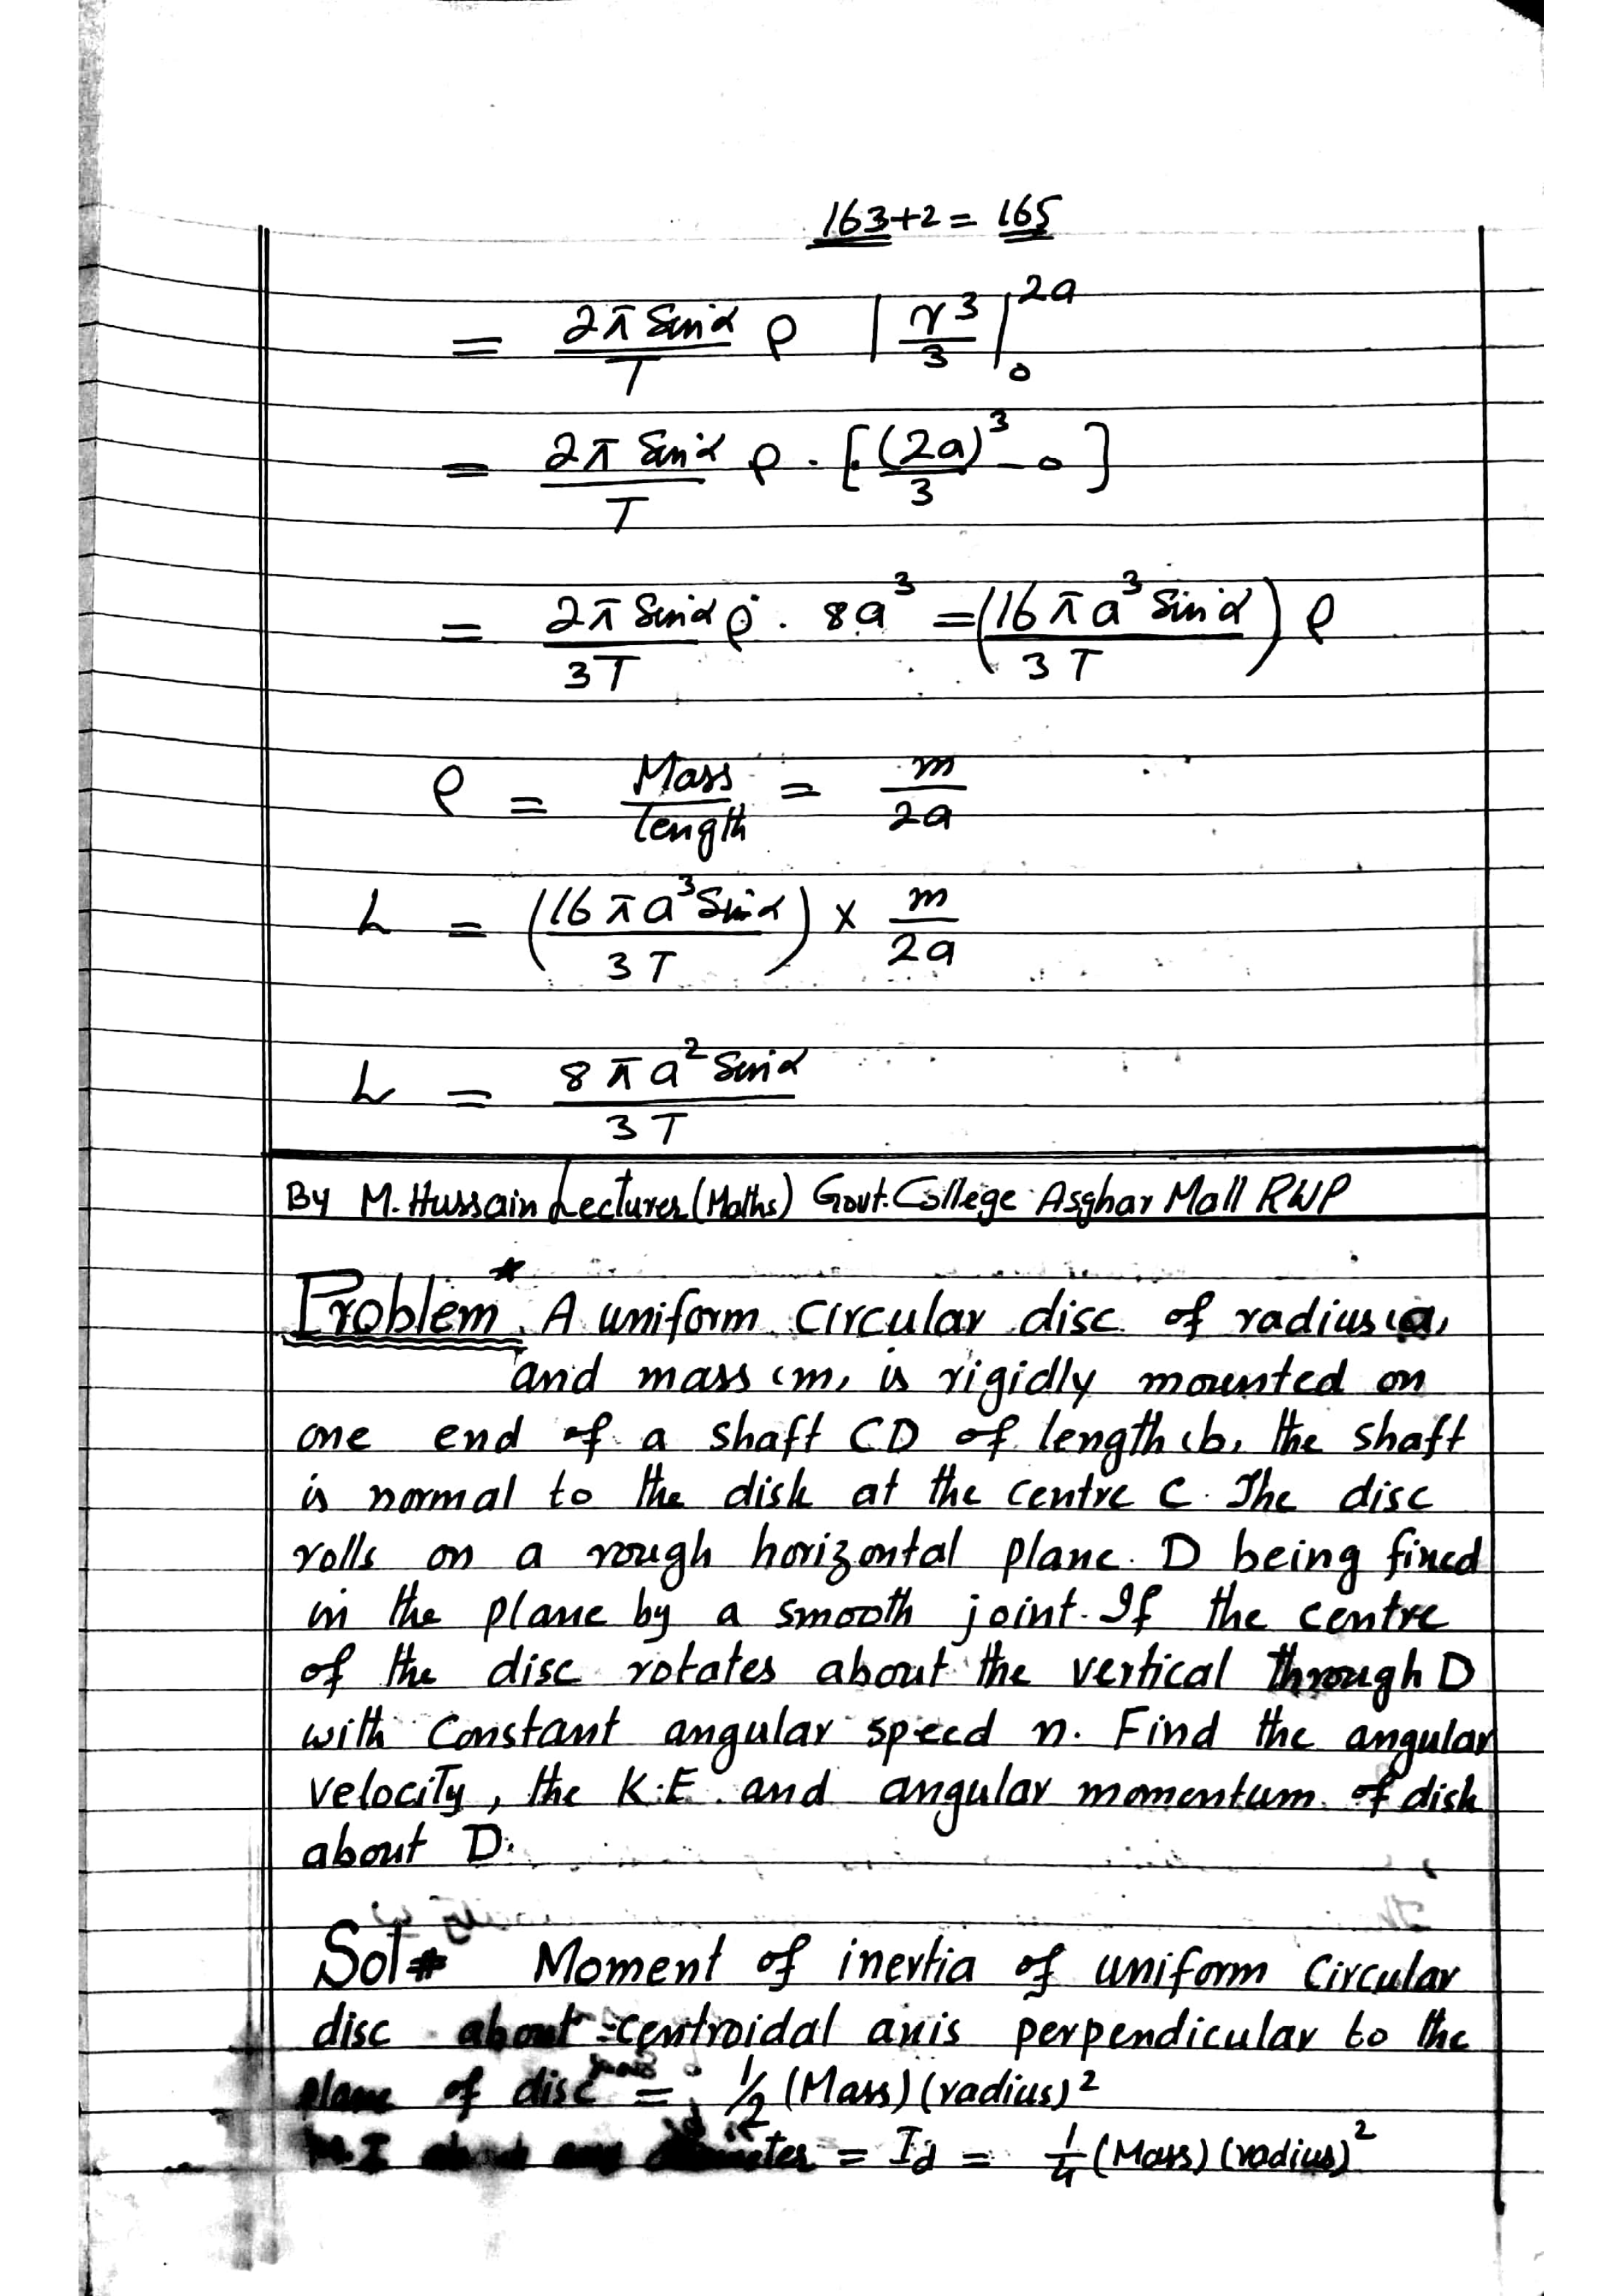 163+2 = 165
= 2π Sinα/T ρ |r³/3|₀²ᵃ
= 2π Sinα/T ρ . [(2a)³/3 - 0]
= 2π Sinα ρ/3T . 8a³ = (16πa³ Sinα/3T) ρ
ρ = Mass/length = m/2a
L = (16πa³ Sinα/3T) × m/2a
L = 8πa² Sinα/3T
By M. Hussain Lecturer (Maths) Govt. College Asghar Mall RWP
Problem* A uniform circular disc of radius (a)
and mass (m) is rigidly mounted on
one end of a shaft CD of length (b) the shaft
is normal to the disk at the centre C. The disc
rolls on a rough horizontal plane. D being fixed
in the plane by a smooth joint. If the centre
of the disc rotates about the vertical through D
with constant angular speed n. Find the angular
velocity, the K.E and angular momentum of disk
about D.
Sol# Moment of inertia of uniform circular
disc about centroidal axis perpendicular to the
plane of disc = 1/2 (Mass)(radius)²
M.I about any diameter = Id = 1/4 (Mass)(radius)²